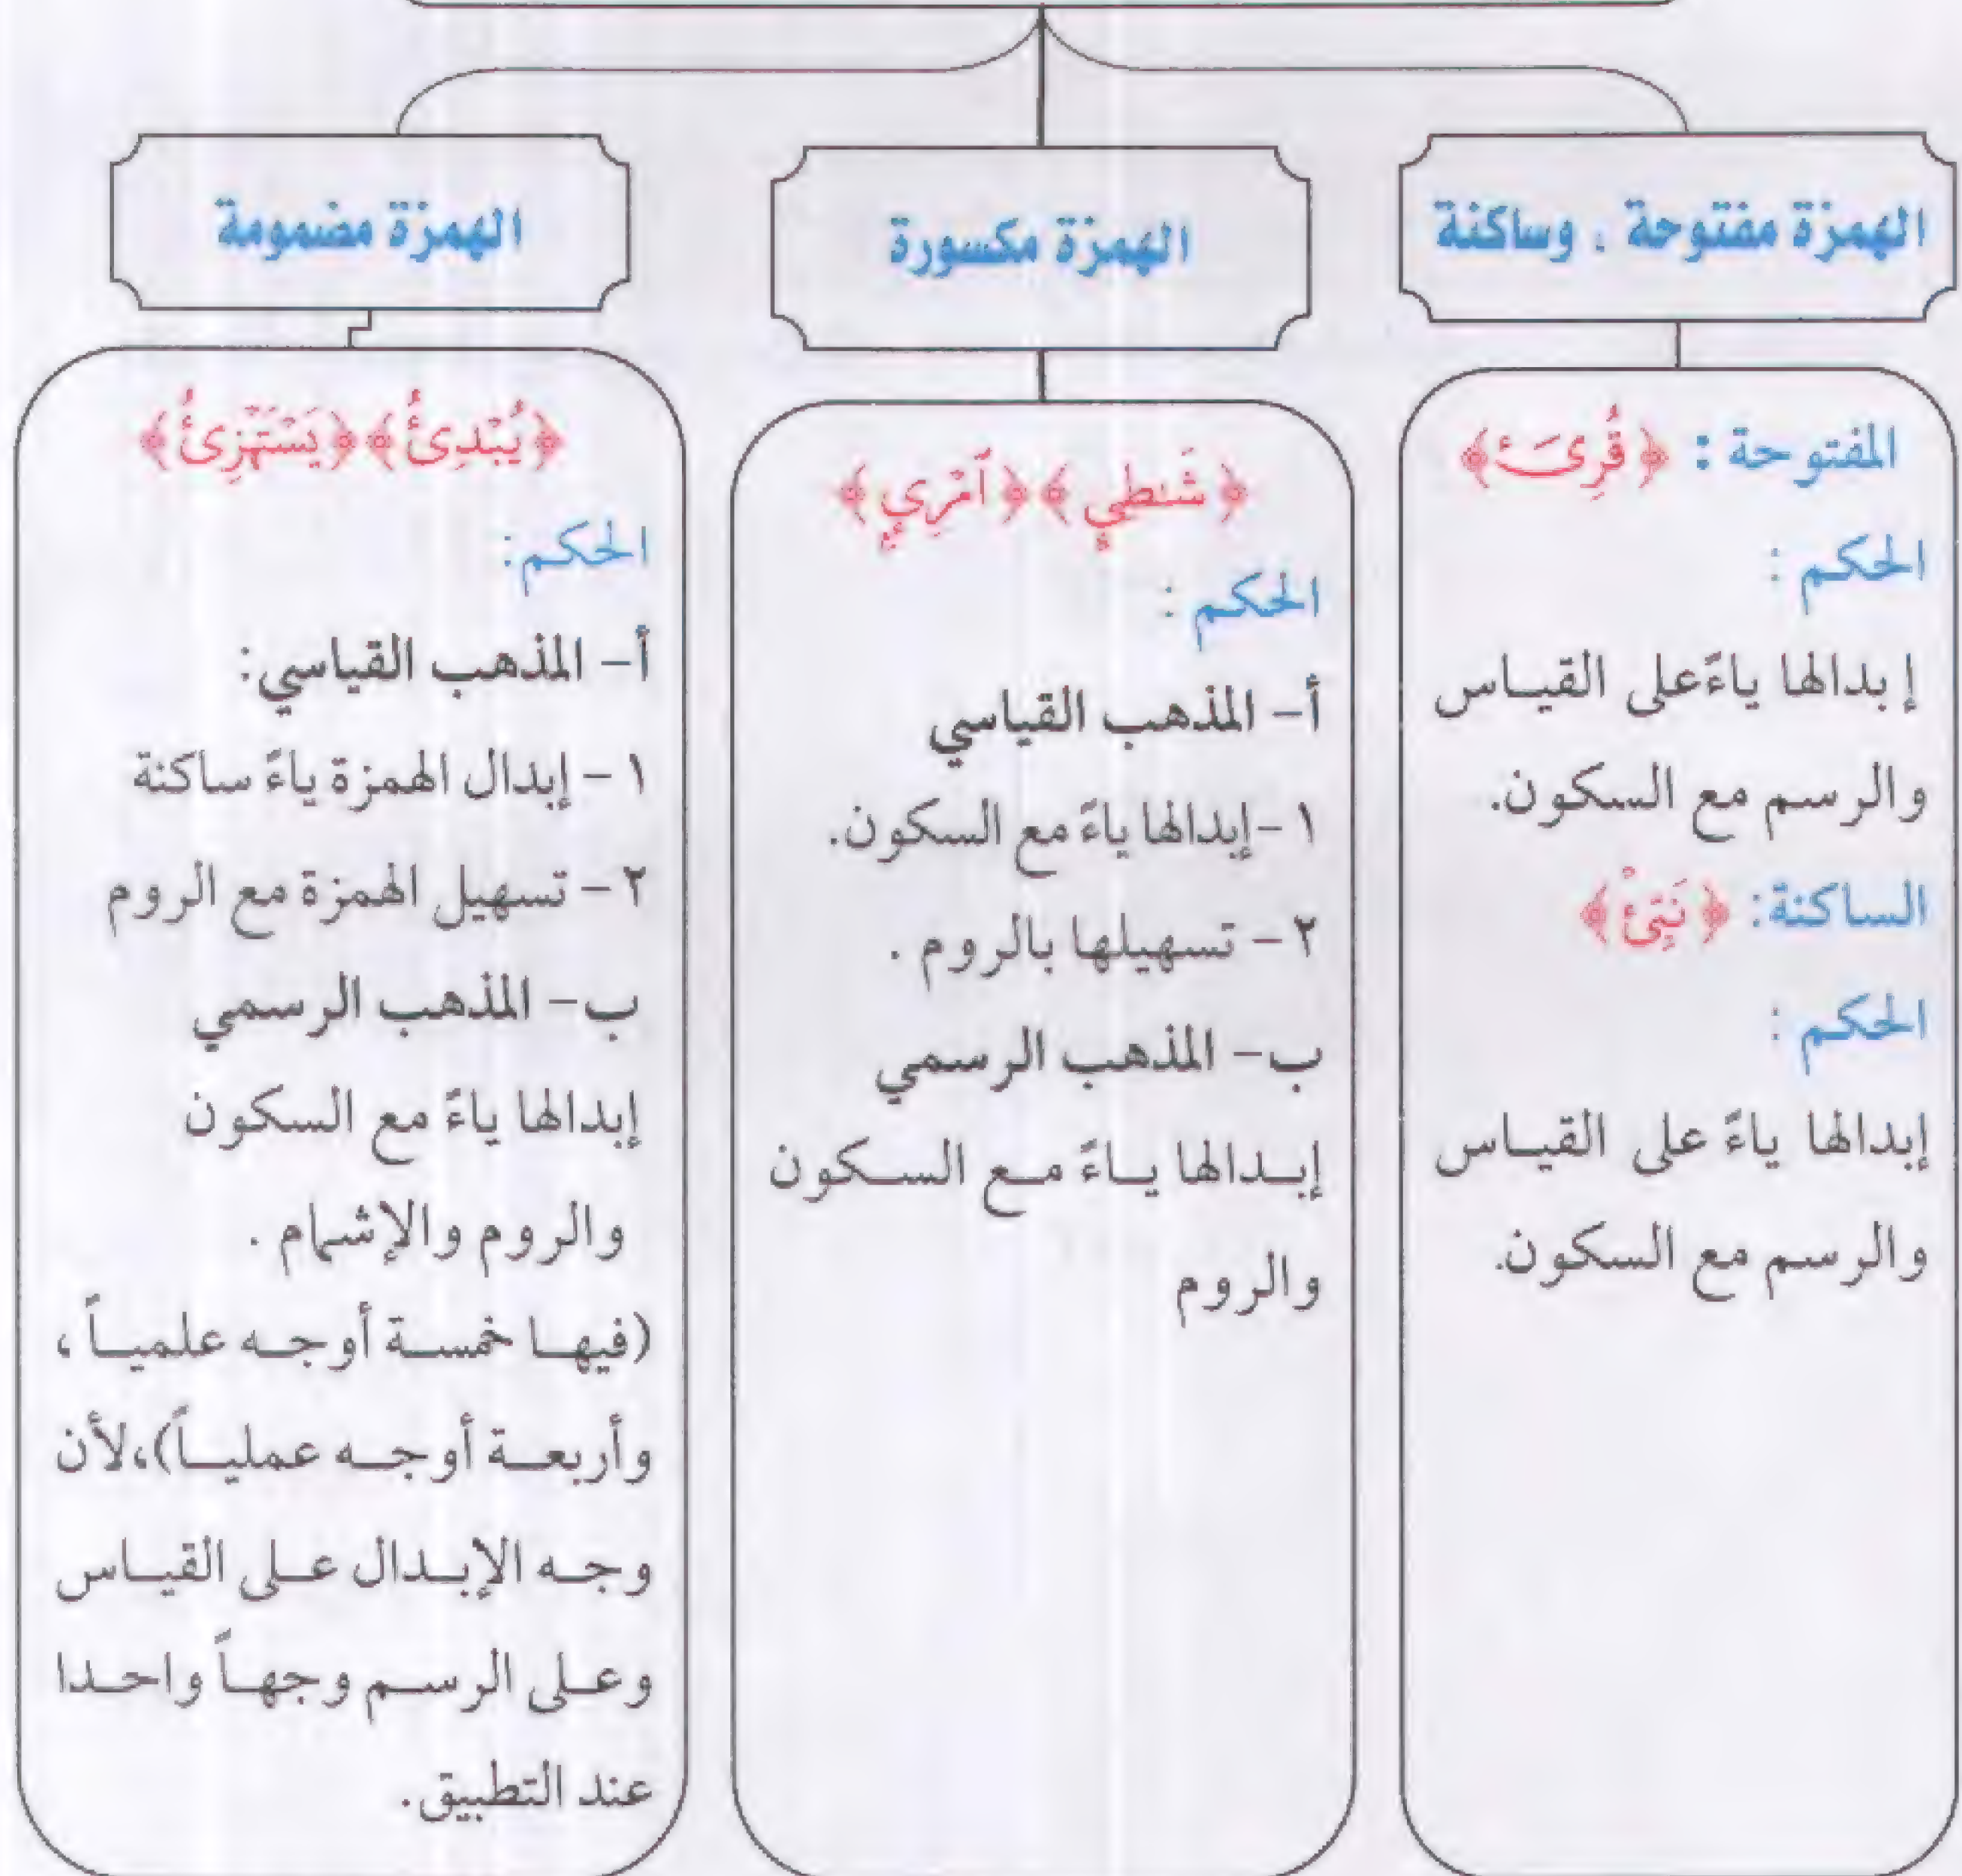 الهمزة مفتوحة ، وساكنة
المفتوحة : ﴿قُرِئَ﴾
الحكم :
إبدالها ياءً على القياس
والرسم مع السكون.
الساكنة: ﴿نَبِّئْ﴾
الحكم :
إبدالها ياءً على القياس
والرسم مع السكون.
الهمزة مكسورة
﴿شَٰطِيِٕ﴾ ﴿ٱمْرِيٕٖ﴾
الحكم :
أ– المذهب القياسي
١ –إبدالها ياءً مع السكون.
٢ – تسهيلها بالروم .
ب– المذهب الرسمي
إبدالها ياءً مع السكون
والروم
الهمزة مضمومة
﴿يُبْدِئُ﴾ ﴿يَسْتَهْزِئُ﴾
الحكم:
أ– المذهب القياسي:
١ – إبدال الهمزة ياءً ساكنة
٢ – تسهيل الهمزة مع الروم
ب– المذهب الرسمي
إبدالها ياءً مع السكون
والروم والإشمام .
(فيها خمسة أوجه علمياً ،
وأربعة أوجه عملياً)،لأن
وجه الإبدال على القياس
وعلى الرسم وجهاً واحدا
عند التطبيق.